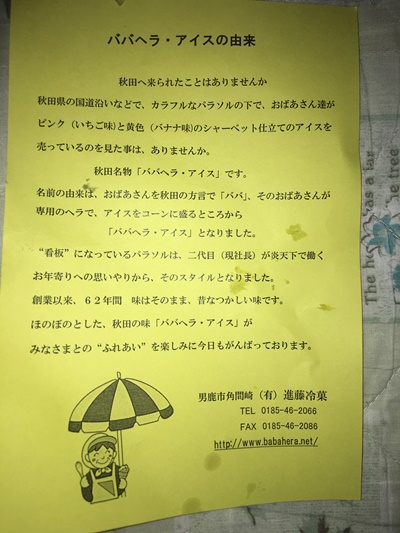 ババヘラ・アイスの由来
秋田へ来られたことはありませんか
秋田県の国道沿いなどで、カラフルなパラソルの下で、おばあさん達が
ピンク（いちご味)と黄色（バナナ味)のシャーベット仕立てのアイスを
売っているのを見た事は、ありませんか。
秋田名物「ババヘラ・アイス」です。
名前の由来は、おばあさんを秋田の方言で「ババ」、そのおばあさんが
専用のヘラで、アイスをコーンに盛るところから
「ババヘラ・アイス」となりました。
“看板”になっているパラソルは、二代目（現社長）が炎天下で働く
お年寄りへの思いやりから、そのスタイルとなりました。
創業以来、６２年間　味はそのまま、昔なつかしい味です。
ほのぼのとした、秋田の味「ババヘラ・アイス」が
みなさまとの“ふれあい”を楽しみに今日もがんばっております。
男鹿市角間崎（有）進藤冷菓
TEL 0185-46-2066
FAX 0185-46-2086
http://www.babahera.net/
The hu
as a lar
the tree